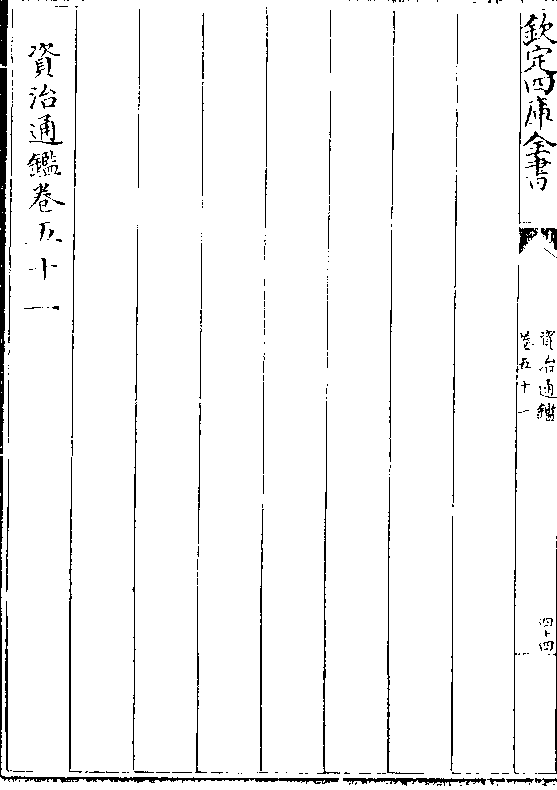 欽定四庫全書
資治通鑑
卷五十一
四十四
資治通鑑卷五十一